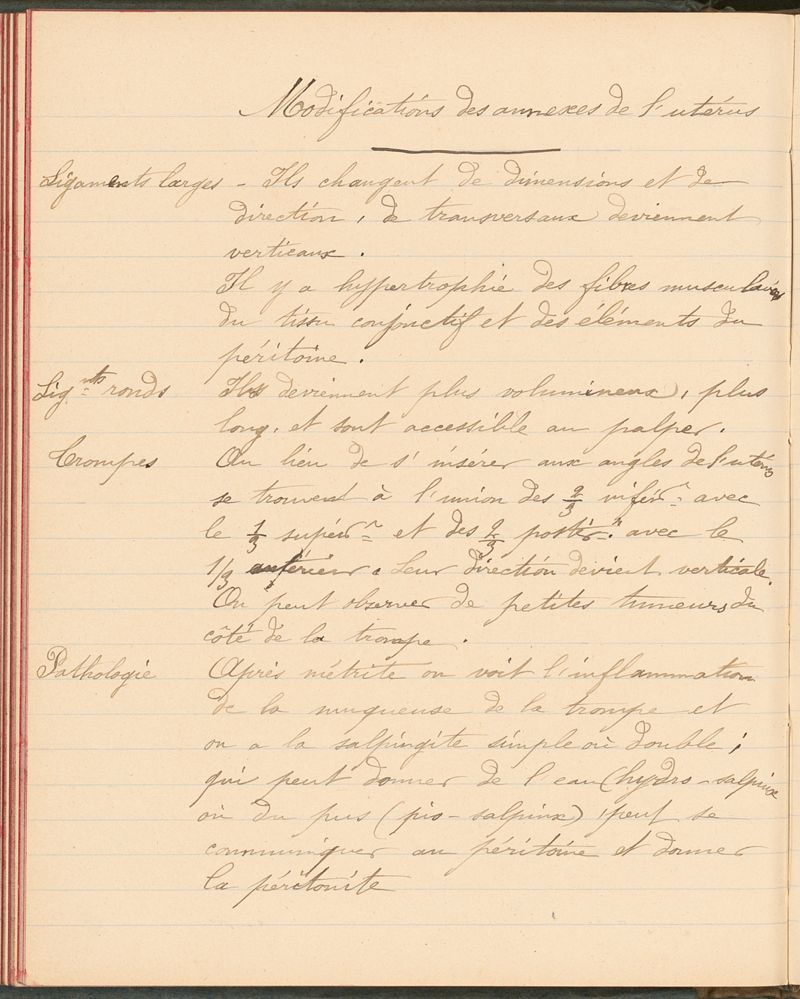 Modifications des annexes de l'utérus
Ligaments larges - Ils changent de dimensions et de
direction, de transversaux deviennent
verticaux.
Il y a hypertrophie des fibres musculaires
du tissu conjonctif et des éléments du
péritoine.
Ligmts ronds Ils deviennent plus volumineux, plus
long, et sont accessible au palper.
Trompes Au lieu de s'insérer aux angles de l'utérus
se trouvent à l'union des 2/3 inférrs avec
le 1/3 supérr et des 2/3 postérrs avec le
1/3 antérieur. Leur direction devient verticale.
On peut observer de petites tumeurs du
côté de la trompe.
Pathologie Après métrite on voit l'inflammation
de la muqueuse de la trompe et
on a la salpingite simple où double;
qui peut donner de l'eau (hydro-salpinx
où du pus (pio-salpinx) peut se
communiquer au péritoine et donner
la péritonite